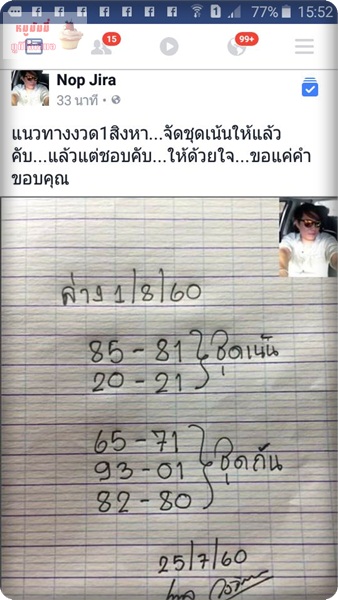 77% 15:52
15
99+
Nop Jira
33 นาที
แนวทางงวด1สิงหา...จัดชุดเน้นให้แล้ว
คับ...แล้วแต่ชอบคับ...ให้ด้วยใจ...ขอแค่คำ
ขอบคุณ
ล่าง 1/8/60
85-81 ชุดเน้น
20-21
65-71
93-01 ชุดกัน
82-80
25/7/60